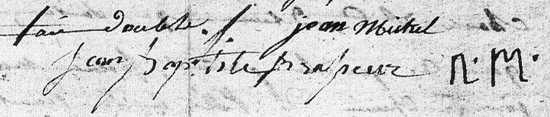 fait double. jean Michel
Jean Baptiste Brasseur N. M.